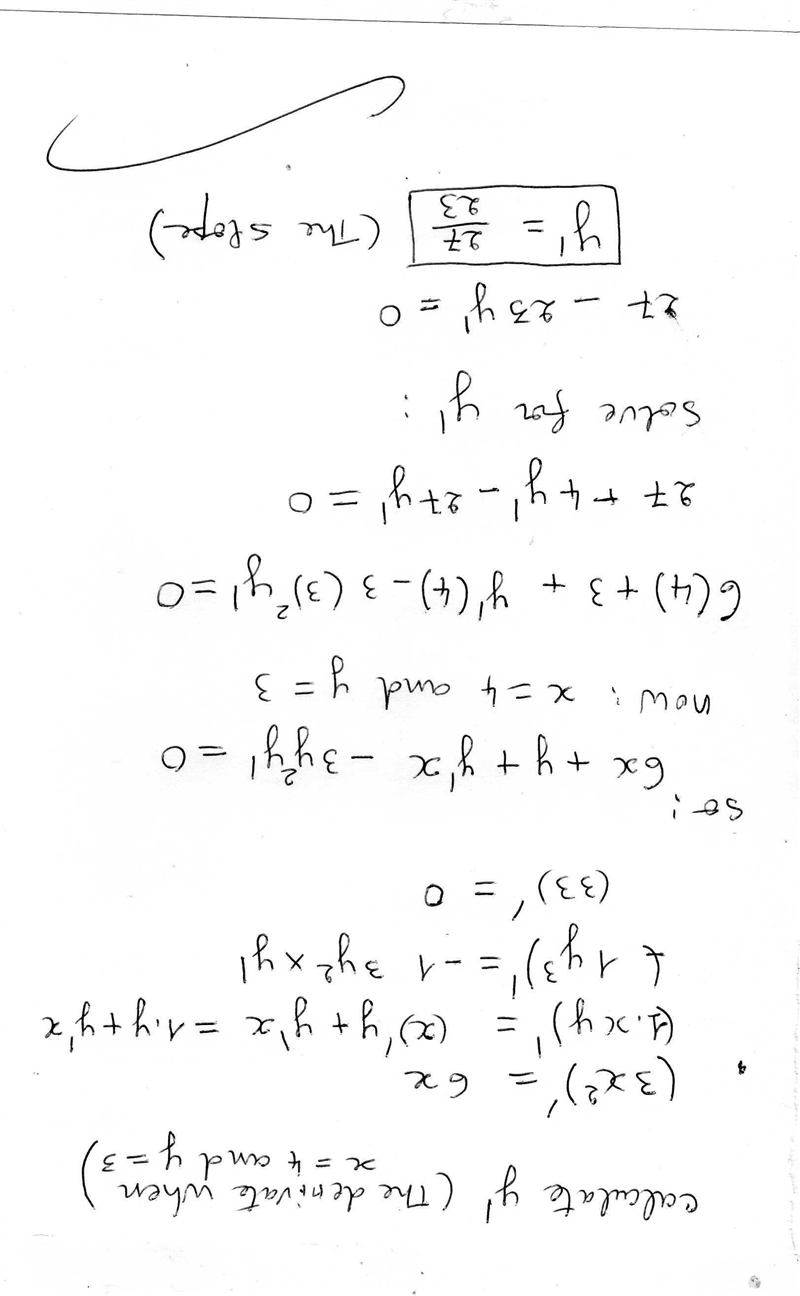 calculate y' (The derivate when
x = 4 and y = 3)
(3x²)' = 6x
(1.xy)' = (x)'y + y'x = 1.y + y'x
(1y³)' = -1 3y² × y'
(33)' = 0
so:
6x + y + y'x - 3y²y' = 0
now: x = 4 and y = 3
6(4) + 3 + y'(4) - 3(3)²y' = 0
27 + 4y' - 27y' = 0
Solve for y':
27 - 23y' = 0
y' = 27/23 (The slope)